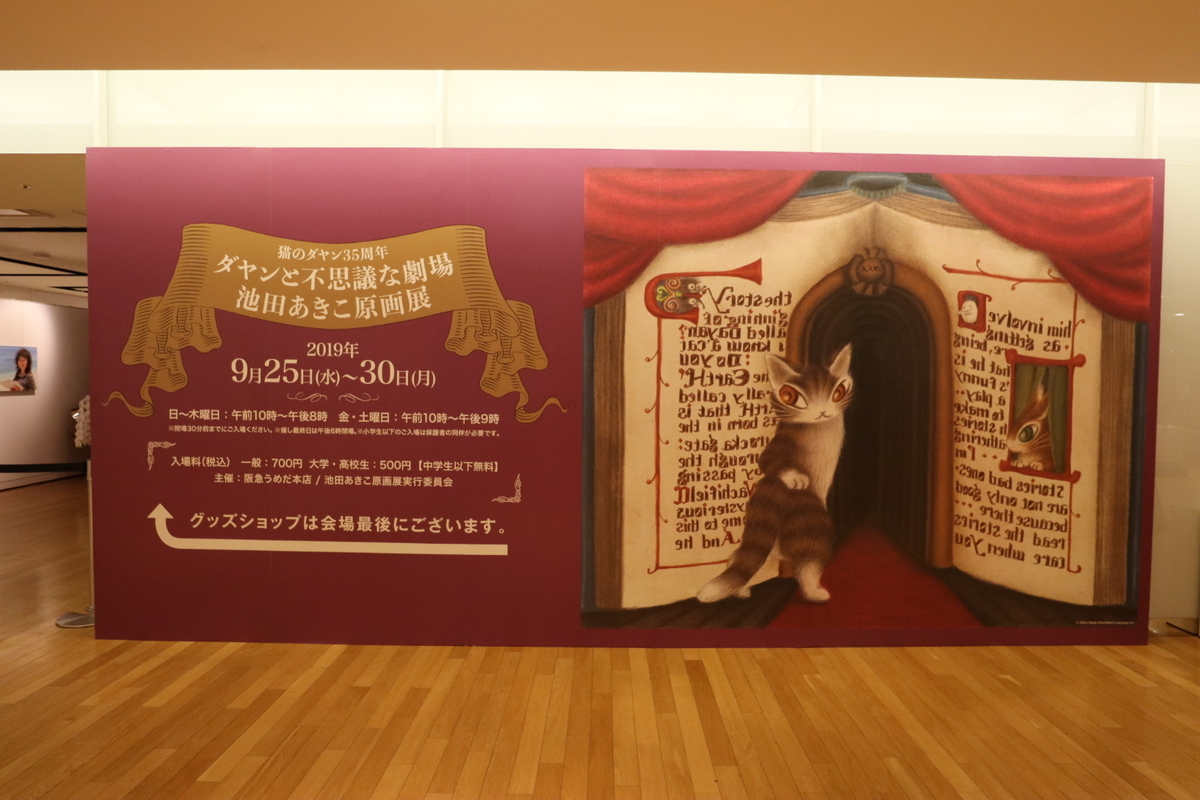 猫のダヤン35周年
ダヤンと不思議な劇場
池田あきこ原画展
2019年
9月25日(水)～30日(月)
日～木曜日：午前10時～午後8時 金・土曜日：午前10時～午後9時
※閉場30分前までにご入場ください。※催し最終日は午後6時閉場。※小学生以下のご入場は保護者の同伴が必要です。
入場料(税込) 一般：700円 大学・高校生：500円【中学生以下無料】
主催：阪急うめだ本店 / 池田あきこ原画展実行委員会
グッズショップは会場最後にございます。
XXXV
the story
ginning of
alled Dayan?
u know a cat
Do you
the Earth.
really called
Earth that is
as born in the
tracka gate.
rough the
passing
Wachifield
ysterious
ome to this
And he
him involve
as getting
re, being
hat he is
's funny
a play
to make
h stories
athering
I'm
stories bad ones.
are not only good
because there
read the stories
care when you